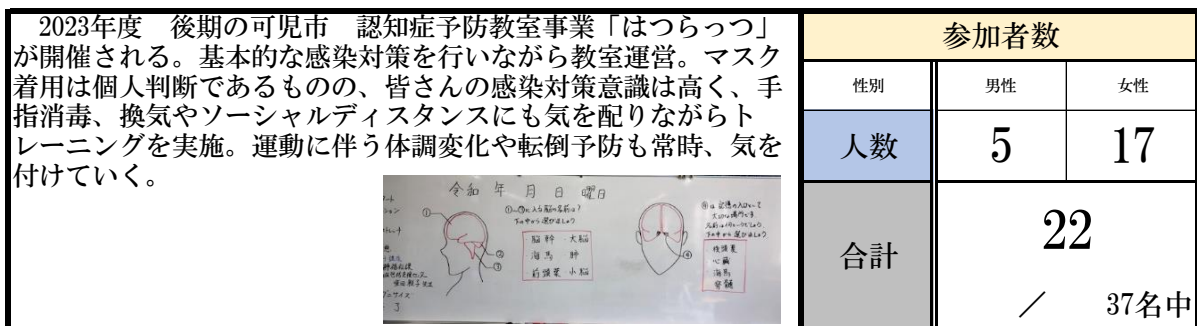 2023年度　後期の可児市　認知症予防教室事業「はつらっつ」
が開催される。基本的な感染対策を行いながら教室運営。マスク
着用は個人判断であるものの、皆さんの感染対策意識は高く、手
指消毒、換気やソーシャルディスタンスにも気を配りながらト
レーニングを実施。運動に伴う体調変化や転倒予防も常時、気を
付けていく。
令和　年　月　日　曜日
①～③に入る脳の名前は？
下の中から選びましょう
脳幹・大脳
海馬　肺
前頭葉　小脳
①
②
③
④は記憶の入口として
大切な場所です。
下の中から選びましょう
・後頭葉
・心臓
・海馬
・脊髄
④
参加者数
性別　男性　女性
人数　5　17
合計　22
／　37名中